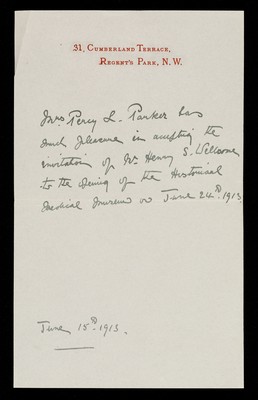 31, Cumberland Terrace,
Regent's Park, N.W.
Mrs Percy L. Parker has
much pleasure in accepting the
invitation of Mr Henry S. Wellcome
to the opening of the Historical
Medical Museum on June 24th. 1913.
June 18th. 1913.